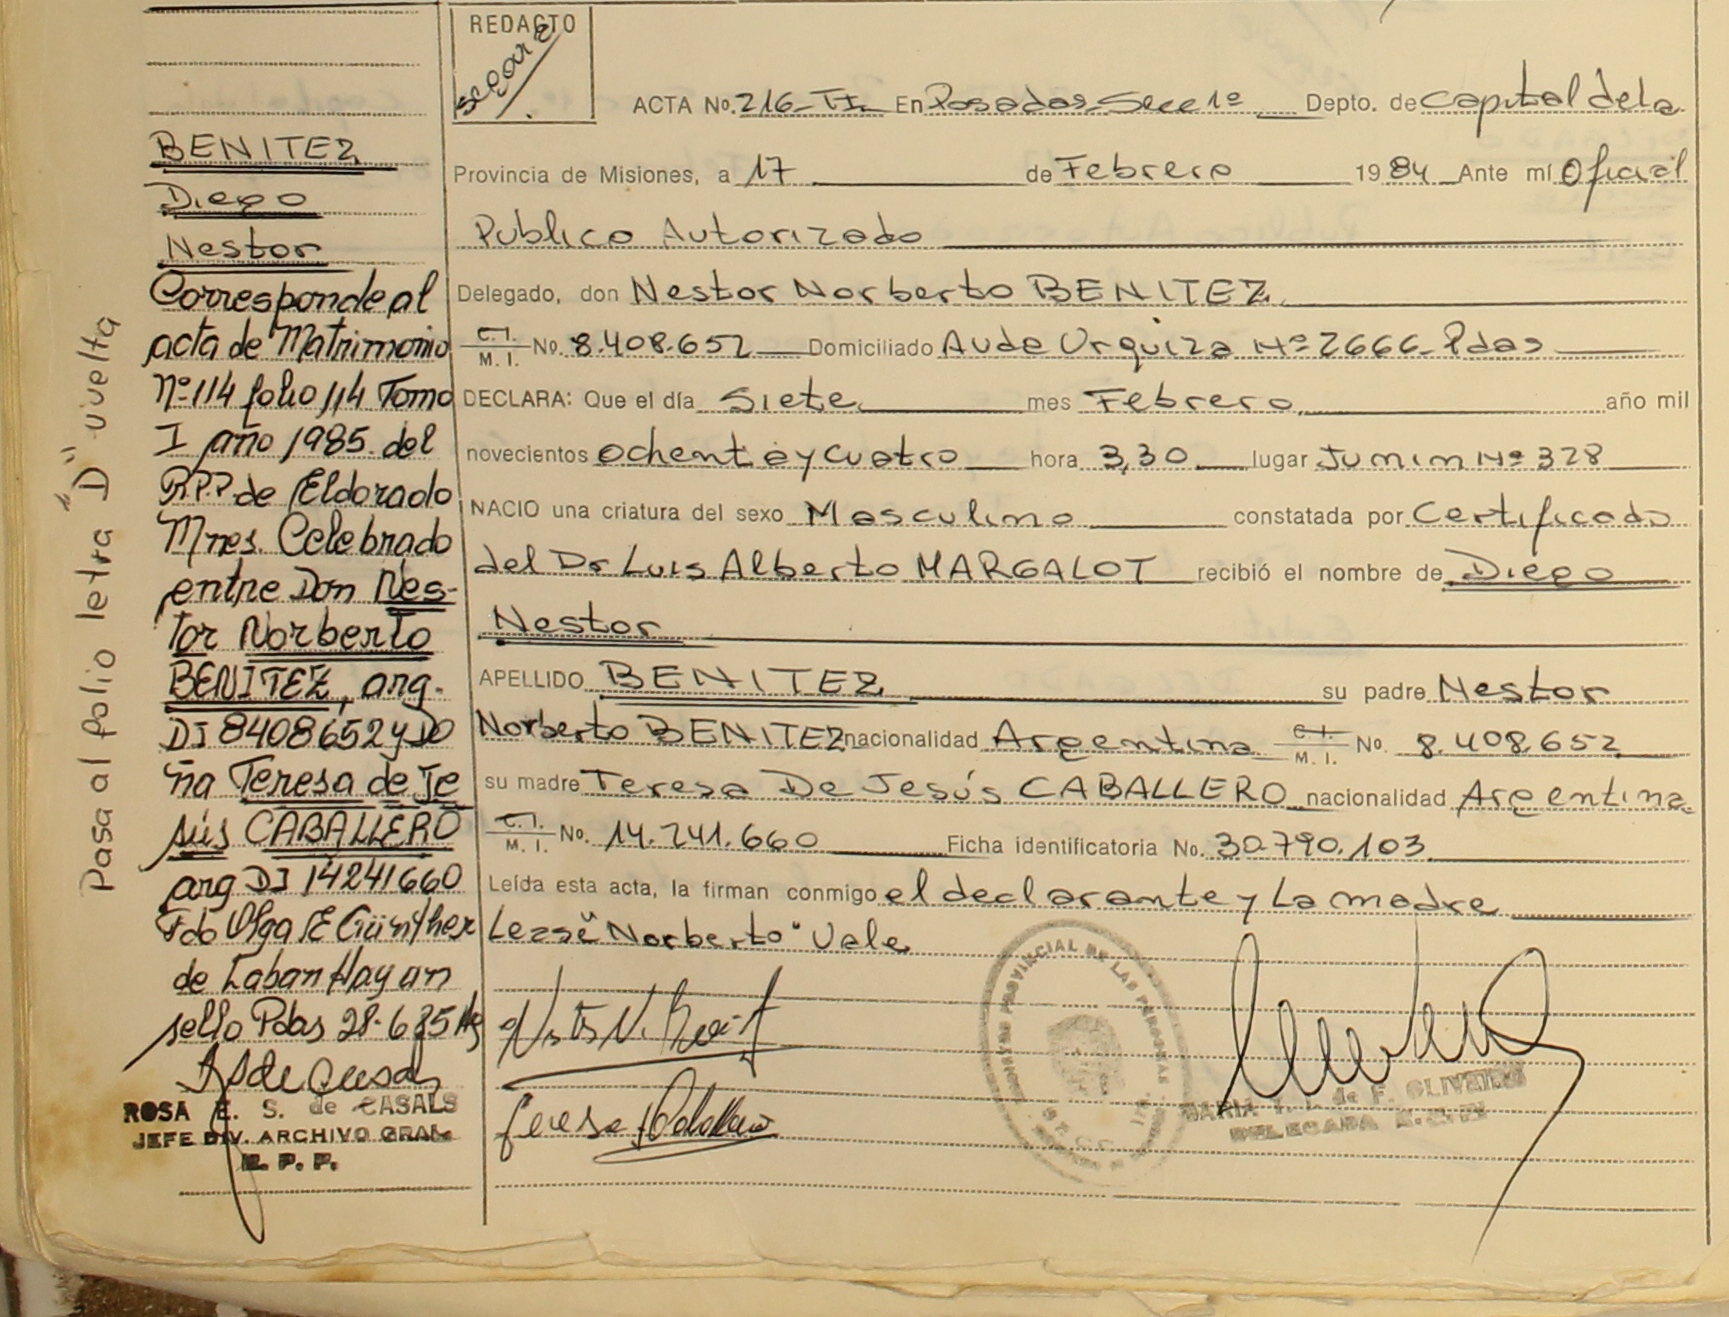 REDACTO
ACTA No. 216-TI En Posadas Secc 1ª Depto. de Capital de la
Provincia de Misiones, a 17 de Febrero 1984 Ante mí Oficial
Publico Autorizado
Delegado, don Nestor Norberto BENITEZ
C.I. M.I. No. 8.408.652 Domiciliado Avda Urquiza Nº 2666 Pdas
DECLARA: Que el día Siete mes Febrero año mil
novecientos ochenta y cuatro hora 3,30 lugar Junin Nº 328
NACIO una criatura del sexo Masculino constatada por Certificado
del Dr Luis Alberto MARGALOT recibió el nombre de Diego
Nestor
APELLIDO BENITEZ su padre Nestor
Norberto BENITEZ nacionalidad Argentina C.I. M.I. No. 8.408.652
su madre Teresa De Jesús CABALLERO nacionalidad Argentina
C.I. M.I. No. 14.241.660 Ficha identificatoria No. 30.790.103
Leída esta acta, la firman conmigo el declarante y La madre
Norberto" Vale
BENITEZ
Diego
Nestor
Corresponde al
acta de Matrimonio
Nº 114 folio 114 Tomo
I año 1985 del
R.P.P de Eldorado
Mnes. Celebrado
entre Don Nes-
tor Norberto
BENITEZ, arg.
DI 8408652 y Do
ña Teresa de Je
sús CABALLERO
arg DI 14241660
Fdo Olga E Günther
de Laban Hay un
sello Pdas 28-6-85
ROSA E. S. de CASALS
JEFE DIV. ARCHIVO GRAL.
R. P. P.
Pasa al folio letra "D" vuelta
PROVINCIAL DE LAS PERSONAS
MARIA de F. OLIVEIRA
DELEGADA